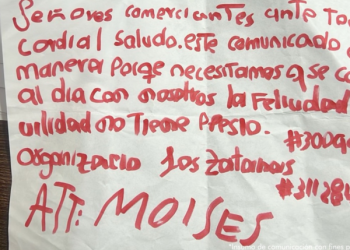 Señores comerciantes ante to
cordial saludo. este comunicado
manera porqe necesitamos qse
al dia con nosotros la Felicidad
no Tiene Presio.
#300
organizacio Los
#311281
ATT: MOISES